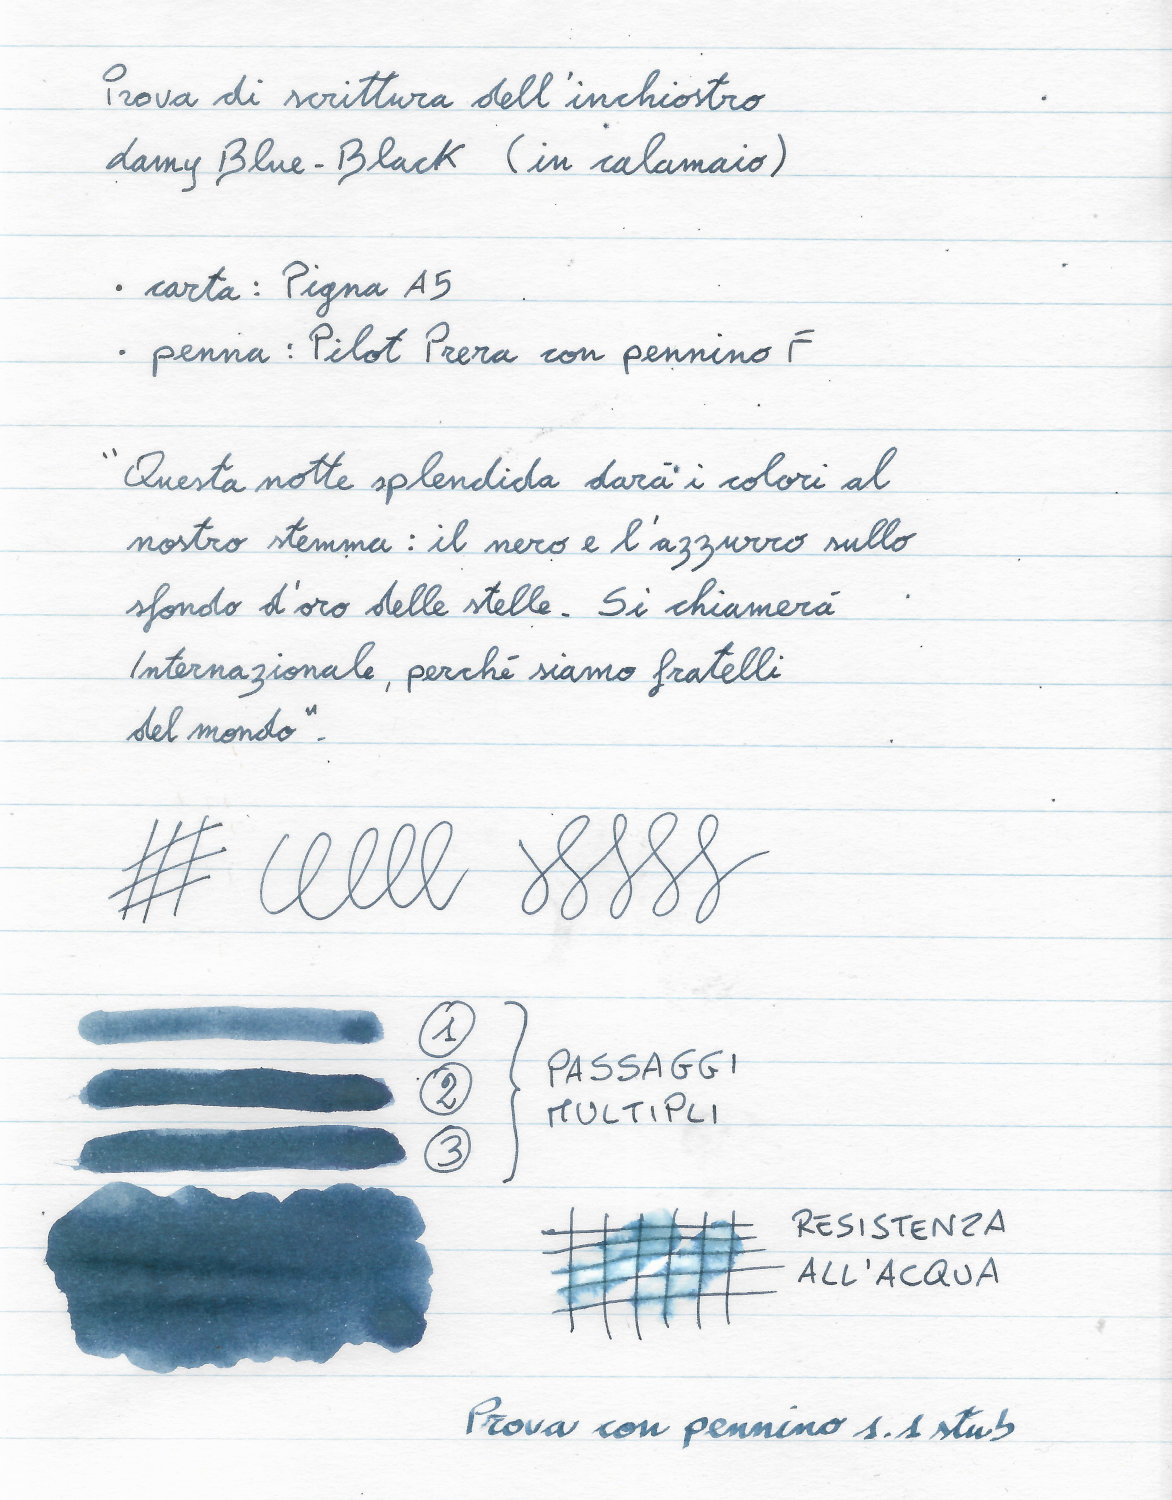 Prova di scrittura dell'inchiostro
Lamy Blue-Black (in calamaio)
• carta: Pigna A5
• penna: Pilot Prera con pennino F
"Questa notte splendida darà i colori al
nostro stemma: il nero e l'azzurro sullo
sfondo d'oro delle stelle. Si chiamerà
Internazionale, perché siamo fratelli
del mondo".
1
2
3
PASSAGGI
MULTIPLI
RESISTENZA
ALL'ACQUA
Prova con pennino 1.1 stub